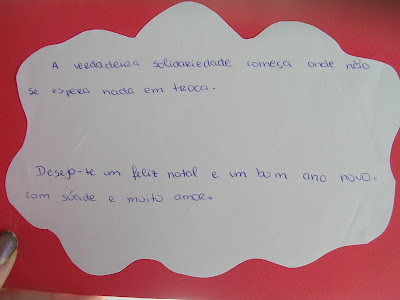 A verdadeira solidariedade começa onde não
se espera nada em troca.
Desejo-te um feliz natal e um bom ano novo.
com sáude e muito amor.